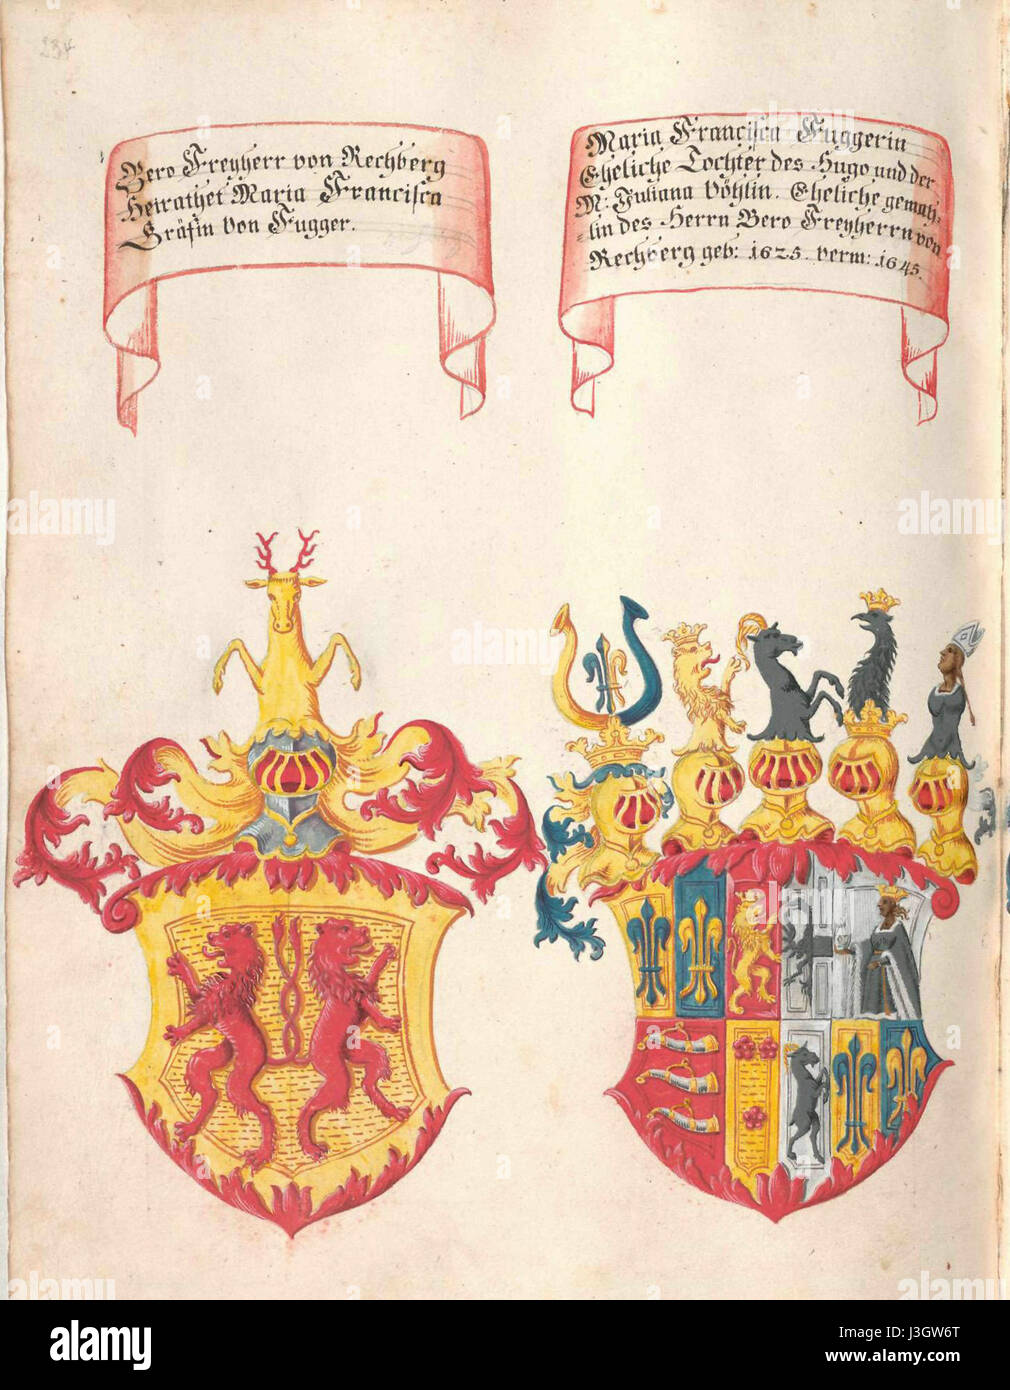 234
Bero Freyherr von Rechberg
Heirathet Maria Francisca
Gräfin von Fugger.
Maria Francisca Fuggerin
Eheliche Tochter des Hugo und der
M: Juliana Vöhlin. Eheliche gemah-
-lin des Herrn Bero Freyherrn von
Rechberg geb: 1625. verm: 1645.
alamy
alamy
alamy
alamy
alamy
alamy
alamy
a
alamy
Image ID: J3GW6T
www.alamy.com